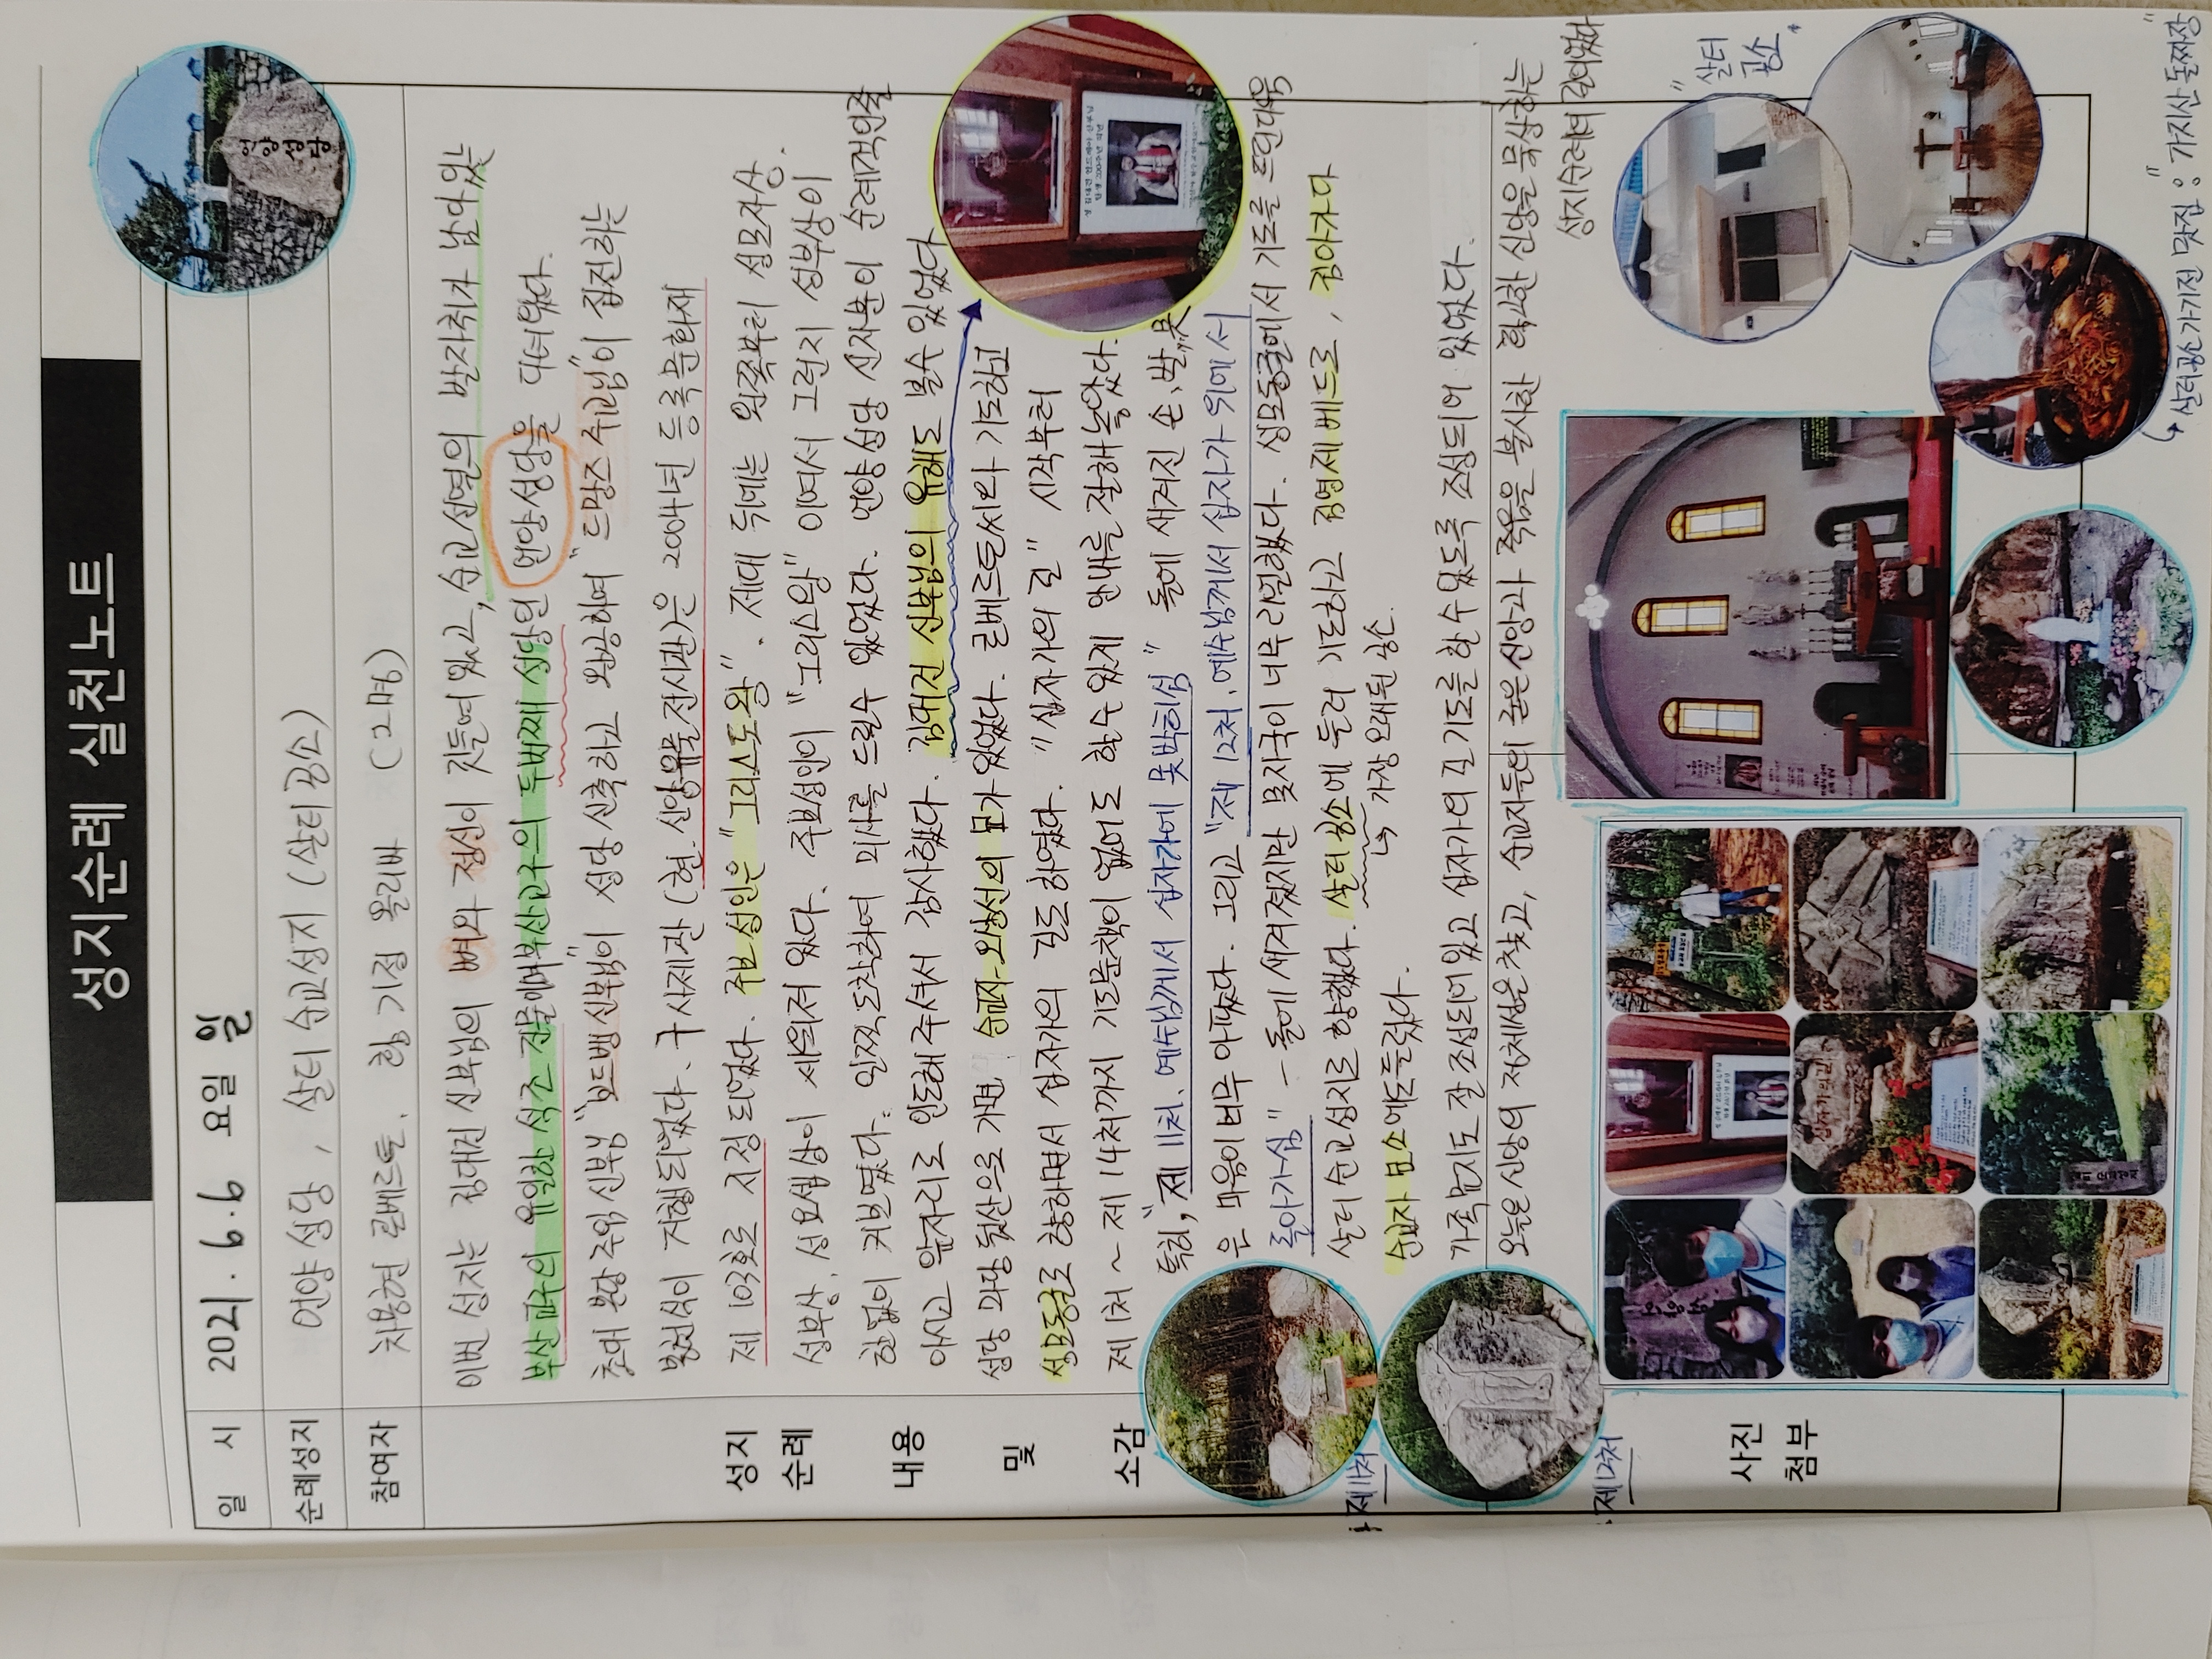 성지순례 실천노트
일 시 2021. 6. 6 요일 일
순례성지 언양성당, 살티 순교성지 (살티공소)
참여자 차용현 로베르토, 황기정 올리바 (2명)
성지
순례
내용
및
소감
이번 성지는 김대건 신부님의 뼈와 정신이 깃들여 있고, 순교선열의 발자취가 남아있는
부산교구의 유일한 석조건물이며 부산교구의 두번째 성당인 언양성당을 다녀왔다.
초대 본당 주임신부님 "보드뱅 신부님"이 성당 신축하고 완공하여 "드망즈 주교님"이 집전하는
봉헌식이 거행되었다. 구 사제관 (현. 신앙유물전시관)은 2004년 등록문화재
제 103호로 지정되었다. 주보성인은 "그리스도왕". 제대 뒤에는 왼쪽부터 성모자상,
성부상, 성요셉상이 세워져 있다. 주보성인이 "그리스도왕" 이여서 그런지 성부상이
한없이 커보였다. 일찍 도착하여 미사를 드릴수 있었다. 언양성당 신자분이 순례객인줄
아시고 앞자리로 인도해 주셔서 감사했다. 김대건 신부님의 유해도 볼수 있었다
성당 마당 뒷산으로 가면 순교자 오상선의 묘가 있었다. 로베르토씨와 기도하고
성모동굴로 향하면서 십자가의 길도 하였다. "십자가의 길" 시작부터
제1처 ~ 제14처까지 기도문책이 없어도 할수 있게 안내를 잘해놓았다.
특히, "제 11처, 예수님께서 십자가에 못박히심" 돌에 새겨진 손, 발, 못
은 마음이 너무 아팠다. 그리고 "제 12처, 예수님께서 십자가 위에서
돌아가심" - 돌에 새겨졌지만 못자국이 너무 리얼했다. 성모동굴에서 기도를 드린다음
살티 순교성지로 향했다. 살티공소에 들러 기도하고 김영제 베드로, 김아가다
↳ 가장 오래된 공소.
순교자 묘소에도 들렀다.
가족묘지도 잘 조성되어 있고 십자가의 길 기도를 할수 있도록 조성되어 있었다.
오늘은 신앙의 정체성을 찾고, 순교자들의 굳은 신앙과 죽음을 불사한 확고한 신앙을 묵상하는
성지순례여 였다
언양성당
성 김대건 안드레아 신부님
탄생 200주년 희년
제11처
제12처
사진
첨부
언양성당
십자가의길
"살티
공소"
→ 살티공소 가기전 맛집 。"가지산 돌짜장"